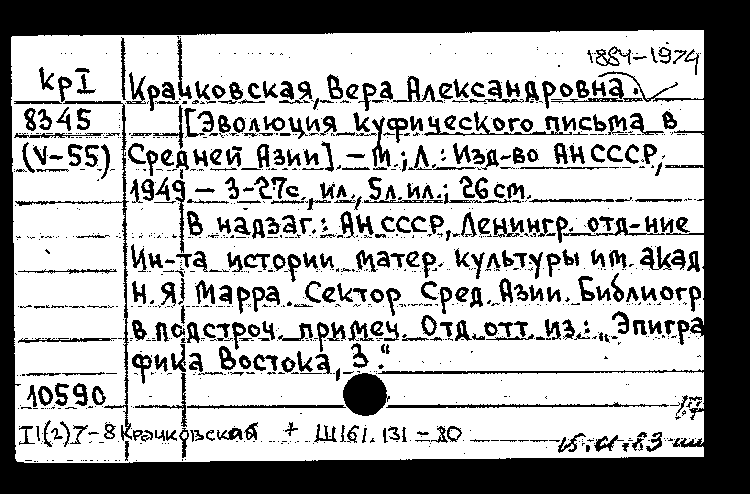 1884-1974
КрI Крачковская, Вера Александровна.
8345 [Эволюция куфического письма в
(V-55) Средней Азии]. – М.; Л.: Изд-во АН СССР,
1949 – 3-27с., ил., 5л. ил.; 26 cm.
В надзаг.: АН СССР, Ленингр. отд-ние
Ин-та истории матер. культуры им. акад.
Н.Я. Марра. Сектор Сред. Азии. Библиогр.
в подстроч. примеч. Отд. отт. из.: „Эпигра
фика Востока, 3.“
10590
П(2)7-8 Крачковский + Ш161.131-80